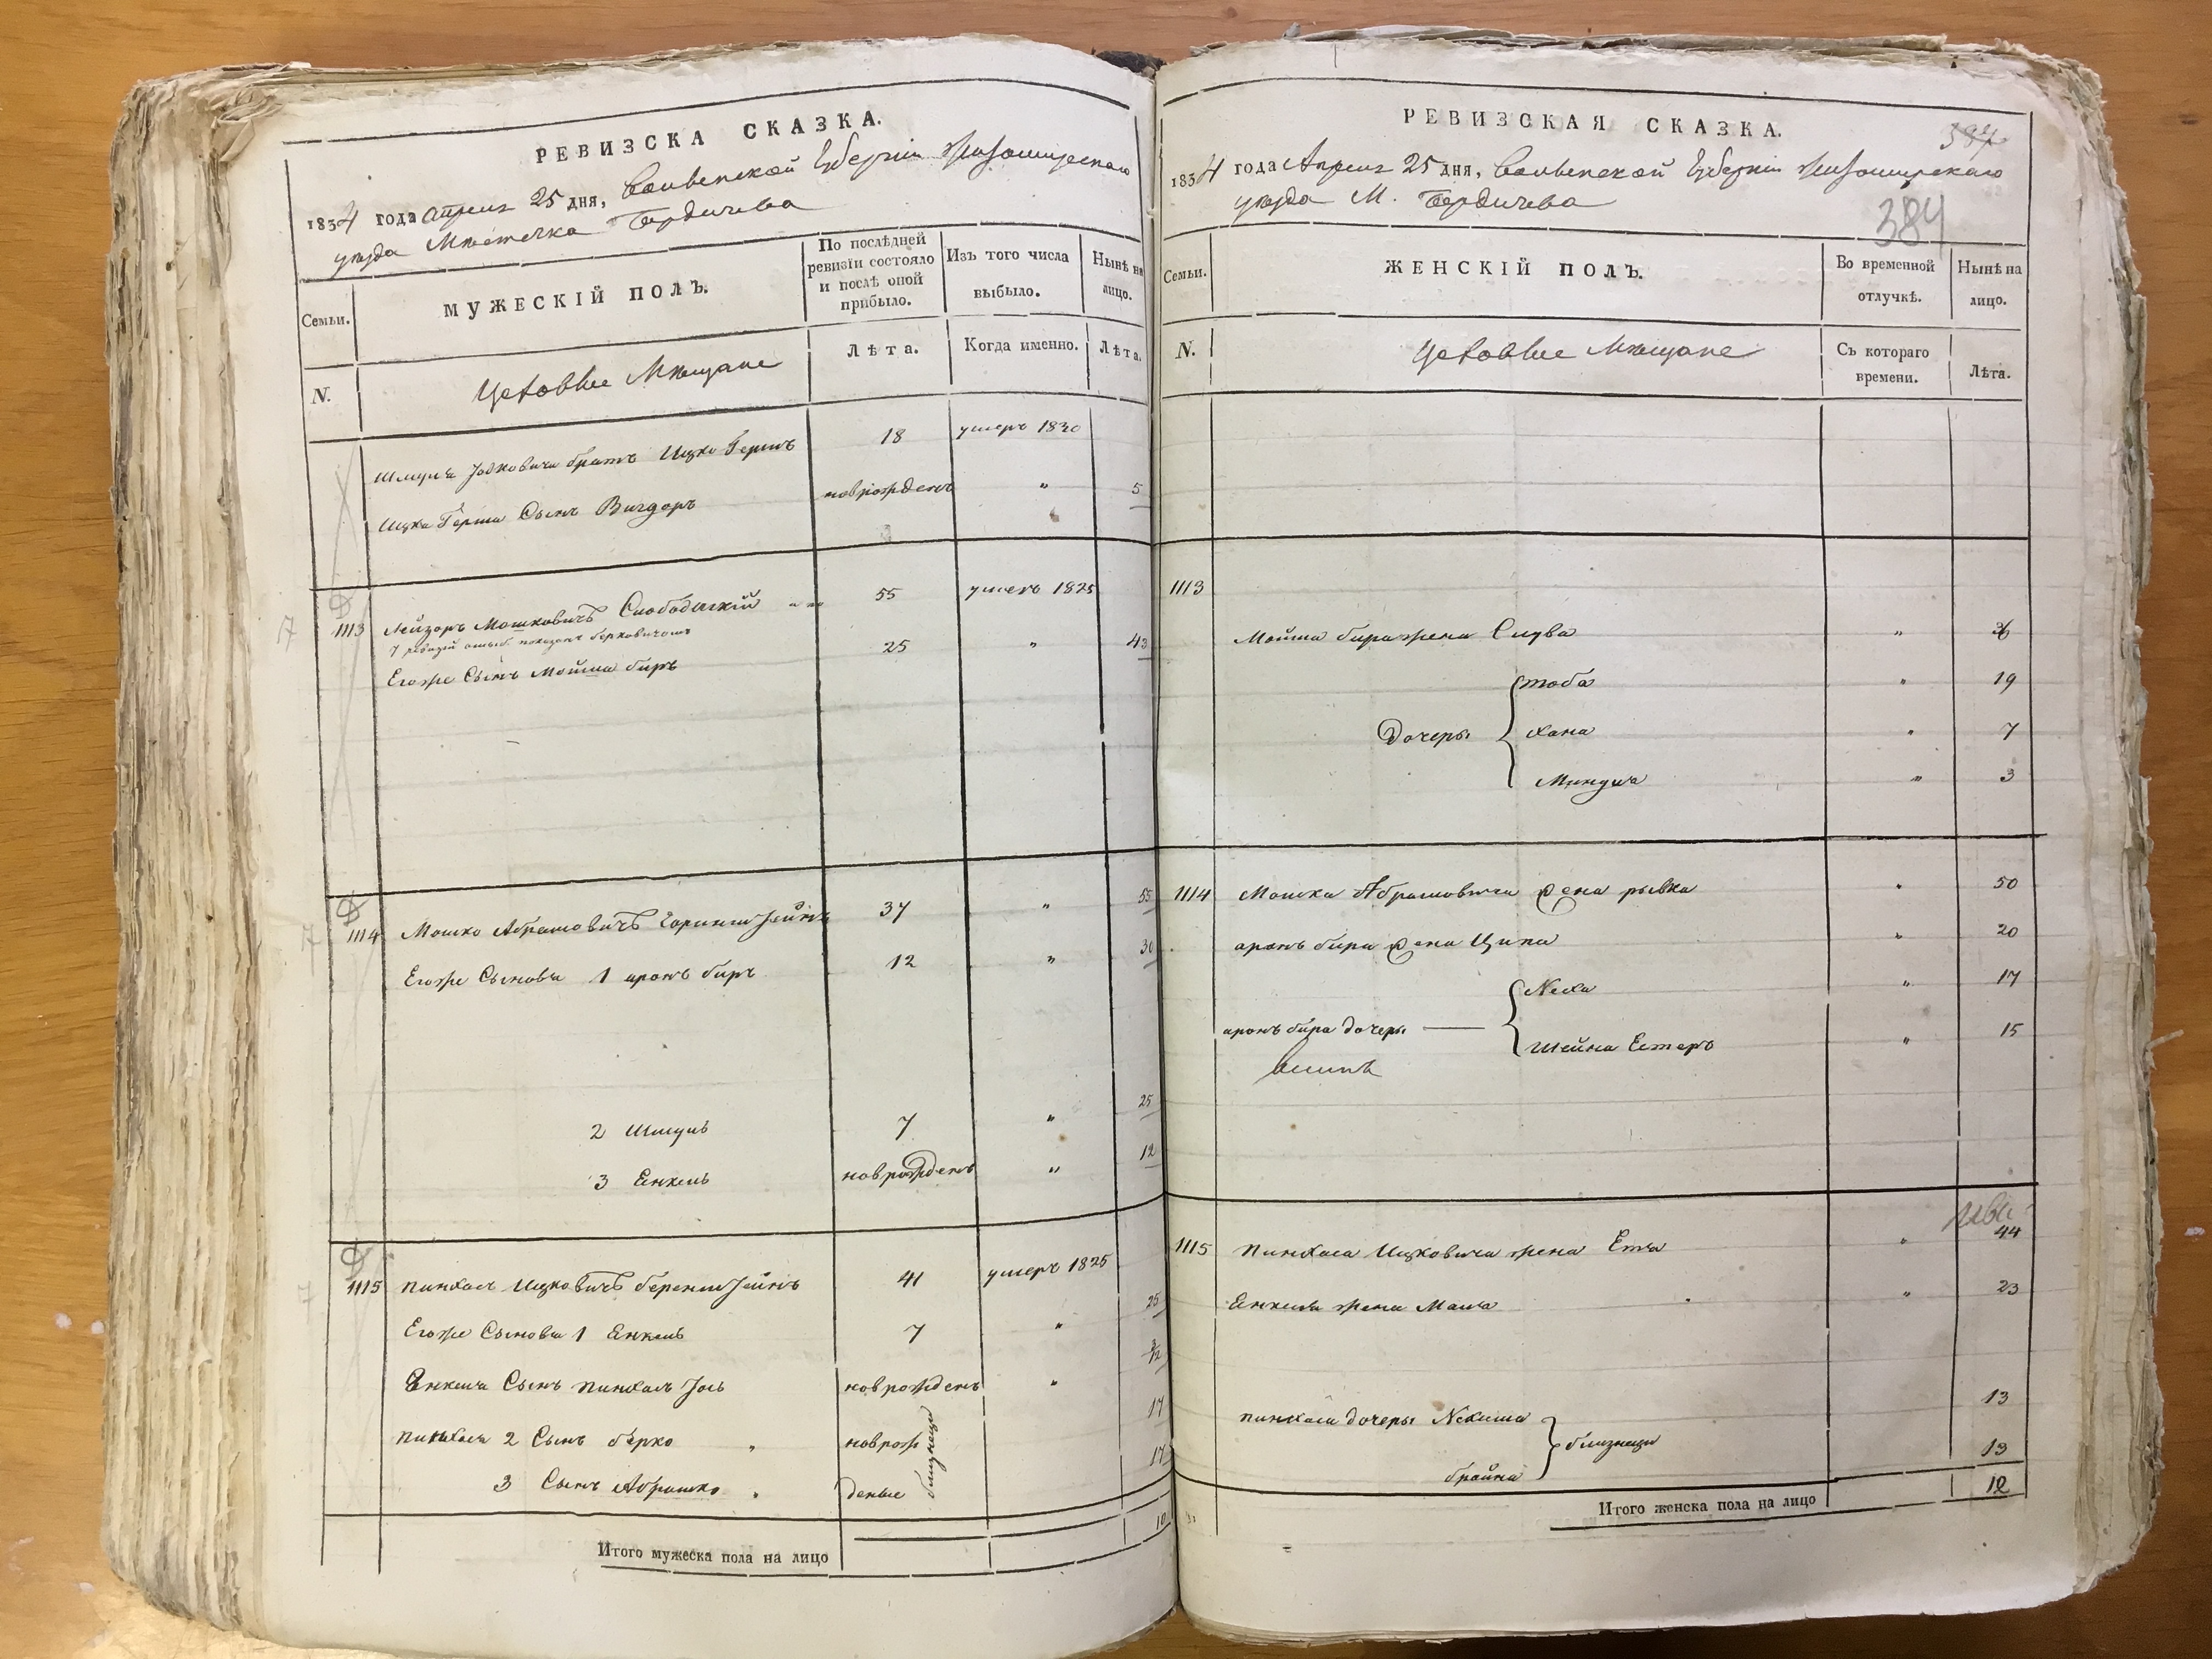 РЕВИЗСКА СКАЗКА.
1834 года Апреля 25 дня, Волынской Губернии Житомирскаго
уезда Местечка Бердичева
Семьи.
МУЖЕСКІЙ ПОЛЪ.
По послѣдней
ревизіи состояло
и послѣ оной
прибыло.
Изъ того числа
выбыло.
Нынѣ на
лицо.
N.
Цеховые Мещане
Лѣта.
Когда именно.
Лѣта.
Шмуля Іосковича братъ Ицко Гершъ 18 умеръ 1830
Ицка Герша Сынъ Вигдоръ новрожденъ " 5
1113 Лейзоръ Мошковичъ Слободискій 55 умеръ 1825
7 ревизій ошиб. показанъ Берковичомъ
Егоже Сынъ Мойша биръ 25 " 43
1114 Мошко Абрамовичъ Горинштейнъ 37 " 55
Егоже Сыновья 1 аронъ биръ 12 " 30
2 Шмуль 7 " 25
3 Енкель новрожденъ " 12
1115 Пинхасъ Ицковичъ беренштейнъ 41 умеръ 1825
Егоже Сыновья 1 Енкель 7 " 25
Енкеля Сынъ Пинхасъ новрожденъ " 3/12
Пинхаса 2 Сынъ берко " новрож 17
3 Сынъ Абрашко " деные близнеци 17
Итого мужеска пола на лицо 10
РЕВИЗСКАЯ СКАЗКА.
384
1834 года Апреля 25 дня, Волынской Губернии Житомирскаго
уезда М. Бердичева
Семьи.
ЖЕНСКІЙ ПОЛЪ.
Во временной
отлучкѣ.
Нынѣ на
лицо.
N.
Цеховые Мещане
Съ котораго
времени.
Лѣта.
1113
Мойша бира жена Слува " 36
тоба " 19
Дочеры Хана " 7
Миндля " 3
1114 Мошка Абрамовича Жена рывка " 50
аронъ бира Жена Ципа " 20
Неха " 17
аронъ бира дочеры
Шейна Естеръ " 15
1115 Пинхаса Ицковича жена Етля " 44
Енкеля жена Маля " 23
пинхаса дочеры Нехама 13
близнеци
брайна 13
Итого женска пола на лицо 12